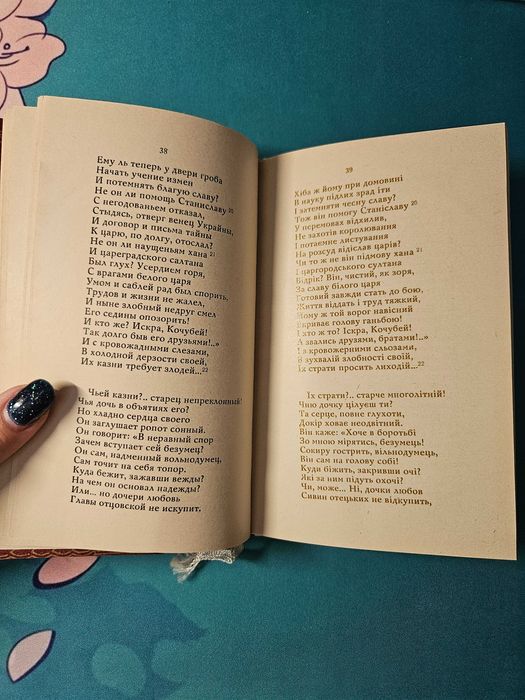 38
Ему ль теперь у двери гроба
Начать учение измен
И потемнять благую славу?
Не он ли помощь Станиславу 20
С негодованьем отказал,
Стыдясь, отверг венец Украйны,
И договор и письма тайны
К царю, по долгу, отослал?
Не он ли наущеньям хана 21
И цареградского султана
Был глух? Усердием горя,
С врагами белого царя
Умом и саблей рад был спорить,
Трудов и жизни не жалел,
И ныне злобный недруг смел
Его седины опозорить!
И кто же? Искра, Кочубей!
Так долго быв его друзьями!..»
И с кровожадными слезами,
В холодной дерзости своей,
Их казни требует злодей...22
Чьей казни?.. старец непреклонный!
Чья дочь в объятиях его?
Но хладно сердца своего
Он заглушает ропот сонный.
Он говорит: «В неравный спор
Зачем вступает сей безумец?
Он сам, надменный вольнодумец,
Сам точит на себя топор.
Куда бежит, зажавши вежды?
На чем он основал надежды?
Или... но дочери любовь
Главы отцовской не искупит,
39
Хіба ж йому при домовині
В науку підлих зрад іти
І затемняти чесну славу?
Тож він помогу Станіславу 20
У перемовах відхилив,
Не захотів королювання
І потаемне листування
На розсуд відіслав царів?
Чи то ж не він підмову хана 21
І царгородського султана
Відрік? Він, чистий, як зоря,
За славу білого царя
Готовий завжди стать до бою,
Життя віддать і труд тяжкий,
Йому ж той ворог навісний
Вкриває голову ганьбою!
І хто ж то? Іскра, Кочубей!
А звались друзями, братами!..»
І з кровожерними сльозами,
В зухвалій злобності своїй,
Їх страти просить лиходій...22
Їх страти?.. старче многолітній!
Чию дочку цілуєш ти?
Та серце, повне глухоти,
Докір ховає неодвітний.
Він каже: «Хоче в боротьбі
Зо мною мірятись, безумець!
Сокиру гострить, вільнодумець,
Він сам на голову собі!
Куди біжить, закривши очі?
Які за ним підуть охочі?
Чи, може... Ні, дочки любов
Сивин отецьких не відкупить,